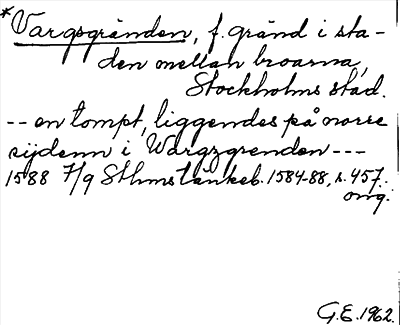 *Vargsgränden, f. gränd i sta-
den mellan broarna,
Stockholms stad.
-- en tompt, liggendes på norre
sijdenn i Wargzgrenden ---
1588 7/9 Sthms tänkeb. 1584-88, s. 457.
omg.
G.E. 1962.